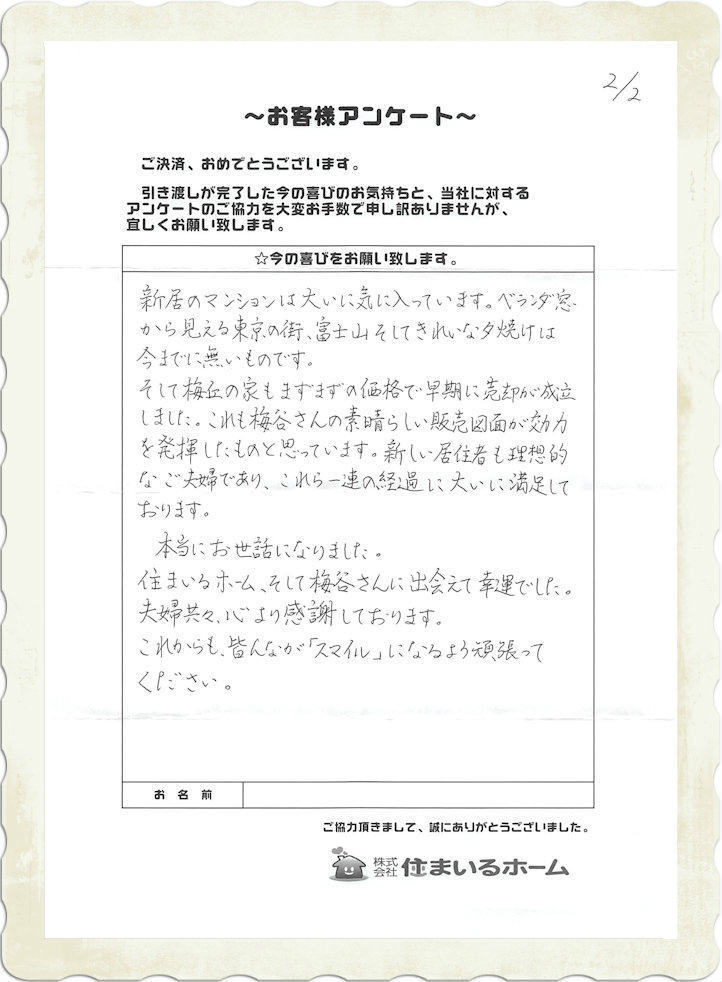 2/2
～お客様アンケート～
ご決済、おめでとうございます。
引き渡しが完了した今の喜びのお気持ちと、当社に対する
アンケートのご協力を大変お手数で申し訳ありませんが、
宜しくお願い致します。
☆今の喜びをお願い致します。
新居のマンションは大いに気に入っています。ベランダ窓
から見える東京の街、富士山そしてきれいな夕焼けは
今までに無いものです。
そして梅丘の家もまずまずの価格で早期に売却が成立
しました。これも梅谷さんの素晴らしい販売図面が効力
を発揮したものと思っています。新しい居住者も理想的
なご夫婦であり、これら一連の経過に大いに満足して
おります。
本当にお世話になりました。
住まいるホーム、そして梅谷さんに出会えて幸運でした。
夫婦共々、心より感謝しております。
これからも、皆んなが「スマイル」になるよう頑張って
ください。
お名前
ご協力頂きまして、誠にありがとうございました。
株式会社 住まいるホーム